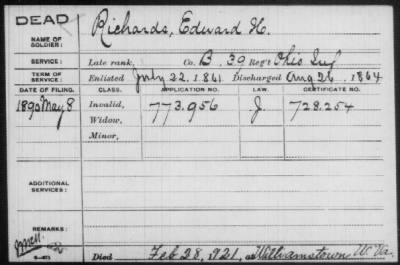 DEAD
NAME OF SOLDIER: Richards, Edward H.
SERVICE: Late rank, Co. B. 39 Reg't Ohio Inf
TERM OF SERVICE: Enlisted July 22, 1861 Discharged Aug 26, 1864
DATE OF FILING. CLASS. APPLICATION NO. LAW. CERTIFICATE NO.
1890 May 8 Invalid, 773.956 J. 728.254
Widow,
Minor,
ADDITIONAL SERVICES:
REMARKS:
Died Feb 28, 1921, at Williamstown W. Va.